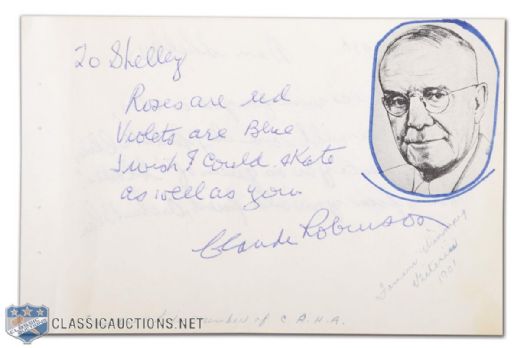 To Shelley
Roses are red
Violets are Blue
I wish I could skate
as well as you
Claude Robinson
Winnipeg
Victorias
1901
member of C.A.H.A.
CLASSICAUCTIONS.NET